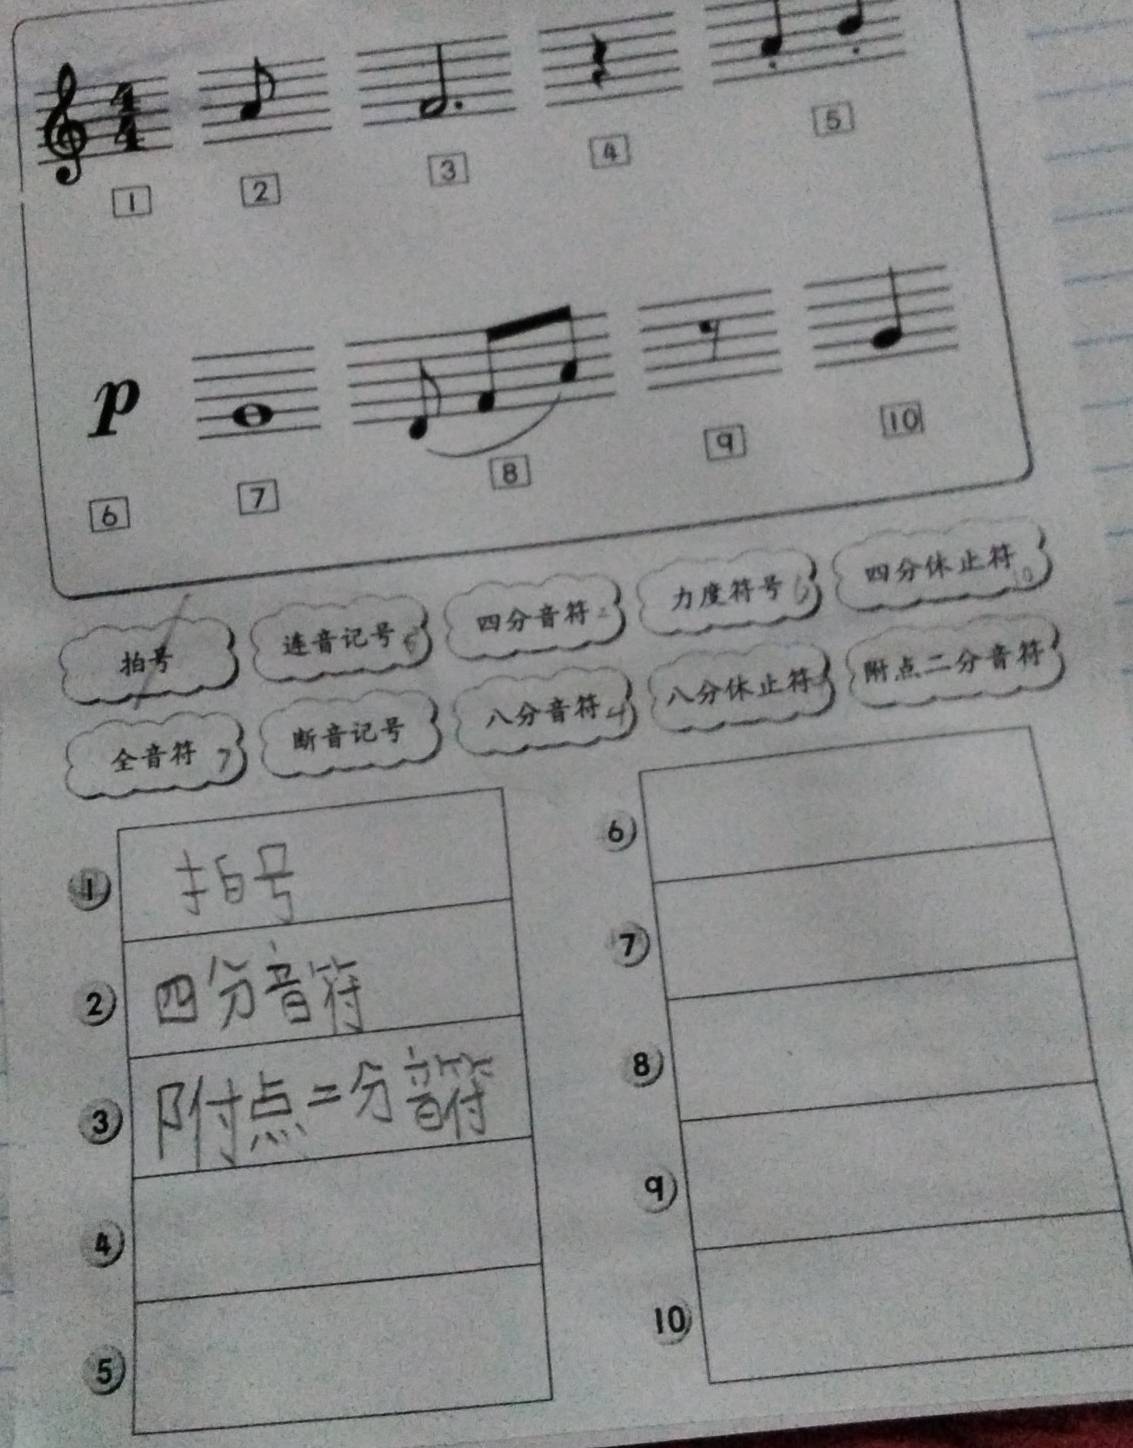 4
4
1 2 3 4 5
p
6 7 8 9 10
拍号 连音记号 四分音符 力度符号 四分休止符
全音符 7 断音记号 八分音符 4 八分休止符 附点二分音符
1 拍号
2 四分音符
3 附点二分音符
4
5
6
7
8
9
10